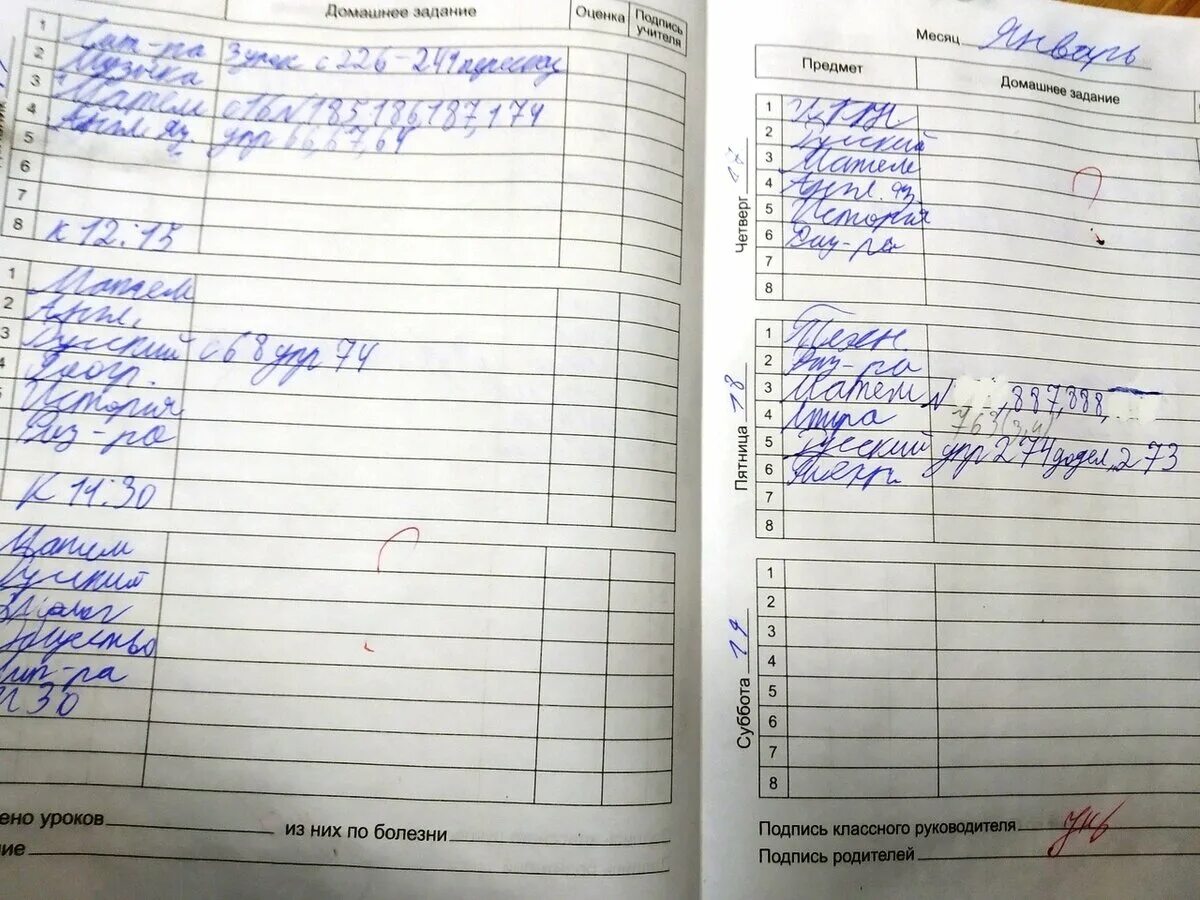 Домашнее задание
Оценка
Подпись учителя
1 Лит-ра
2 Музыка Зурок с 226-241 пересказ
3 Матем с 16 N 185, 186, 187, 174
4 Англ. яз. упр 66, 67, 64
5
6
7
8 К 12:15
1 Матем
2 Англ.
3 Русский с 68 упр 74
4 Геогр.
5 История
Физ-ра
К 14:30
Матем
Русский
Общество
Лит-ра
30
ено уроков
из них по болезни
ние
Месяц Январь
Предмет
Домашнее задание
Четверг 17
1
2 Русский
3 Матем
4 Англ. яз
5 История
6 Физ-ра
7
8
?
Пятница 18
1 Техн
2 Физ-ра
3 Матем N , 887, 888,
763(3,4)
4 Л-тура
5 Русский упр 274 додел, 273
6
7
8
Суббота 19
1
2
3
4
5
6
7
8
Подпись классного руководителя
Подпись родителей